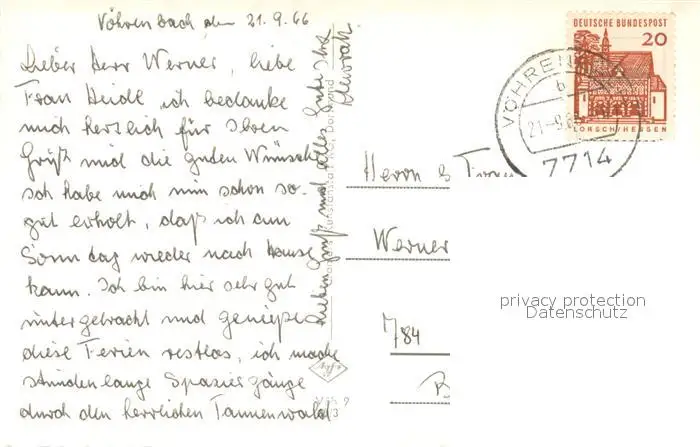 Vöhrenbach, den 21.9.66
Lieber Herr Werner, liebe
Frau Heidl, ich bedanke
mich herzlich für Ihren
Gruß und die guten Wünsche
Ich habe mich nun schon so
gut erholt, daß ich am
Sonntag wieder nach Hause
kann. Ich bin hier sehr gut
untergebracht und genieße
diese Ferien restlos, ich mache
stundenlange Spaziergänge
durch den herrlichen Tannenwald
Lieben Gruß und alles Gute Ihre
DEUTSCHE BUNDESPOST
20
LORSCH/HESSEN
VÖHREN
b
21.-9.6
7714
Herrn & Frau
Werner
784
privacy protection
Datenschutz